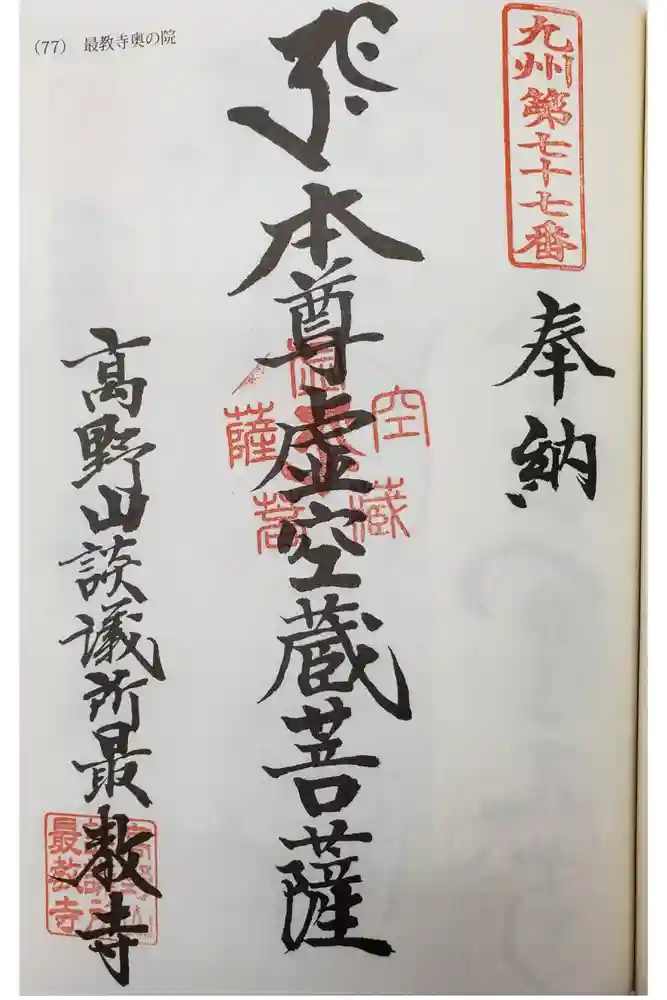 (77) 最教寺奥の院
九州第七十七番
奉納
本尊虚空蔵菩薩
虚空蔵菩薩
高野山談議所最教寺
最教寺